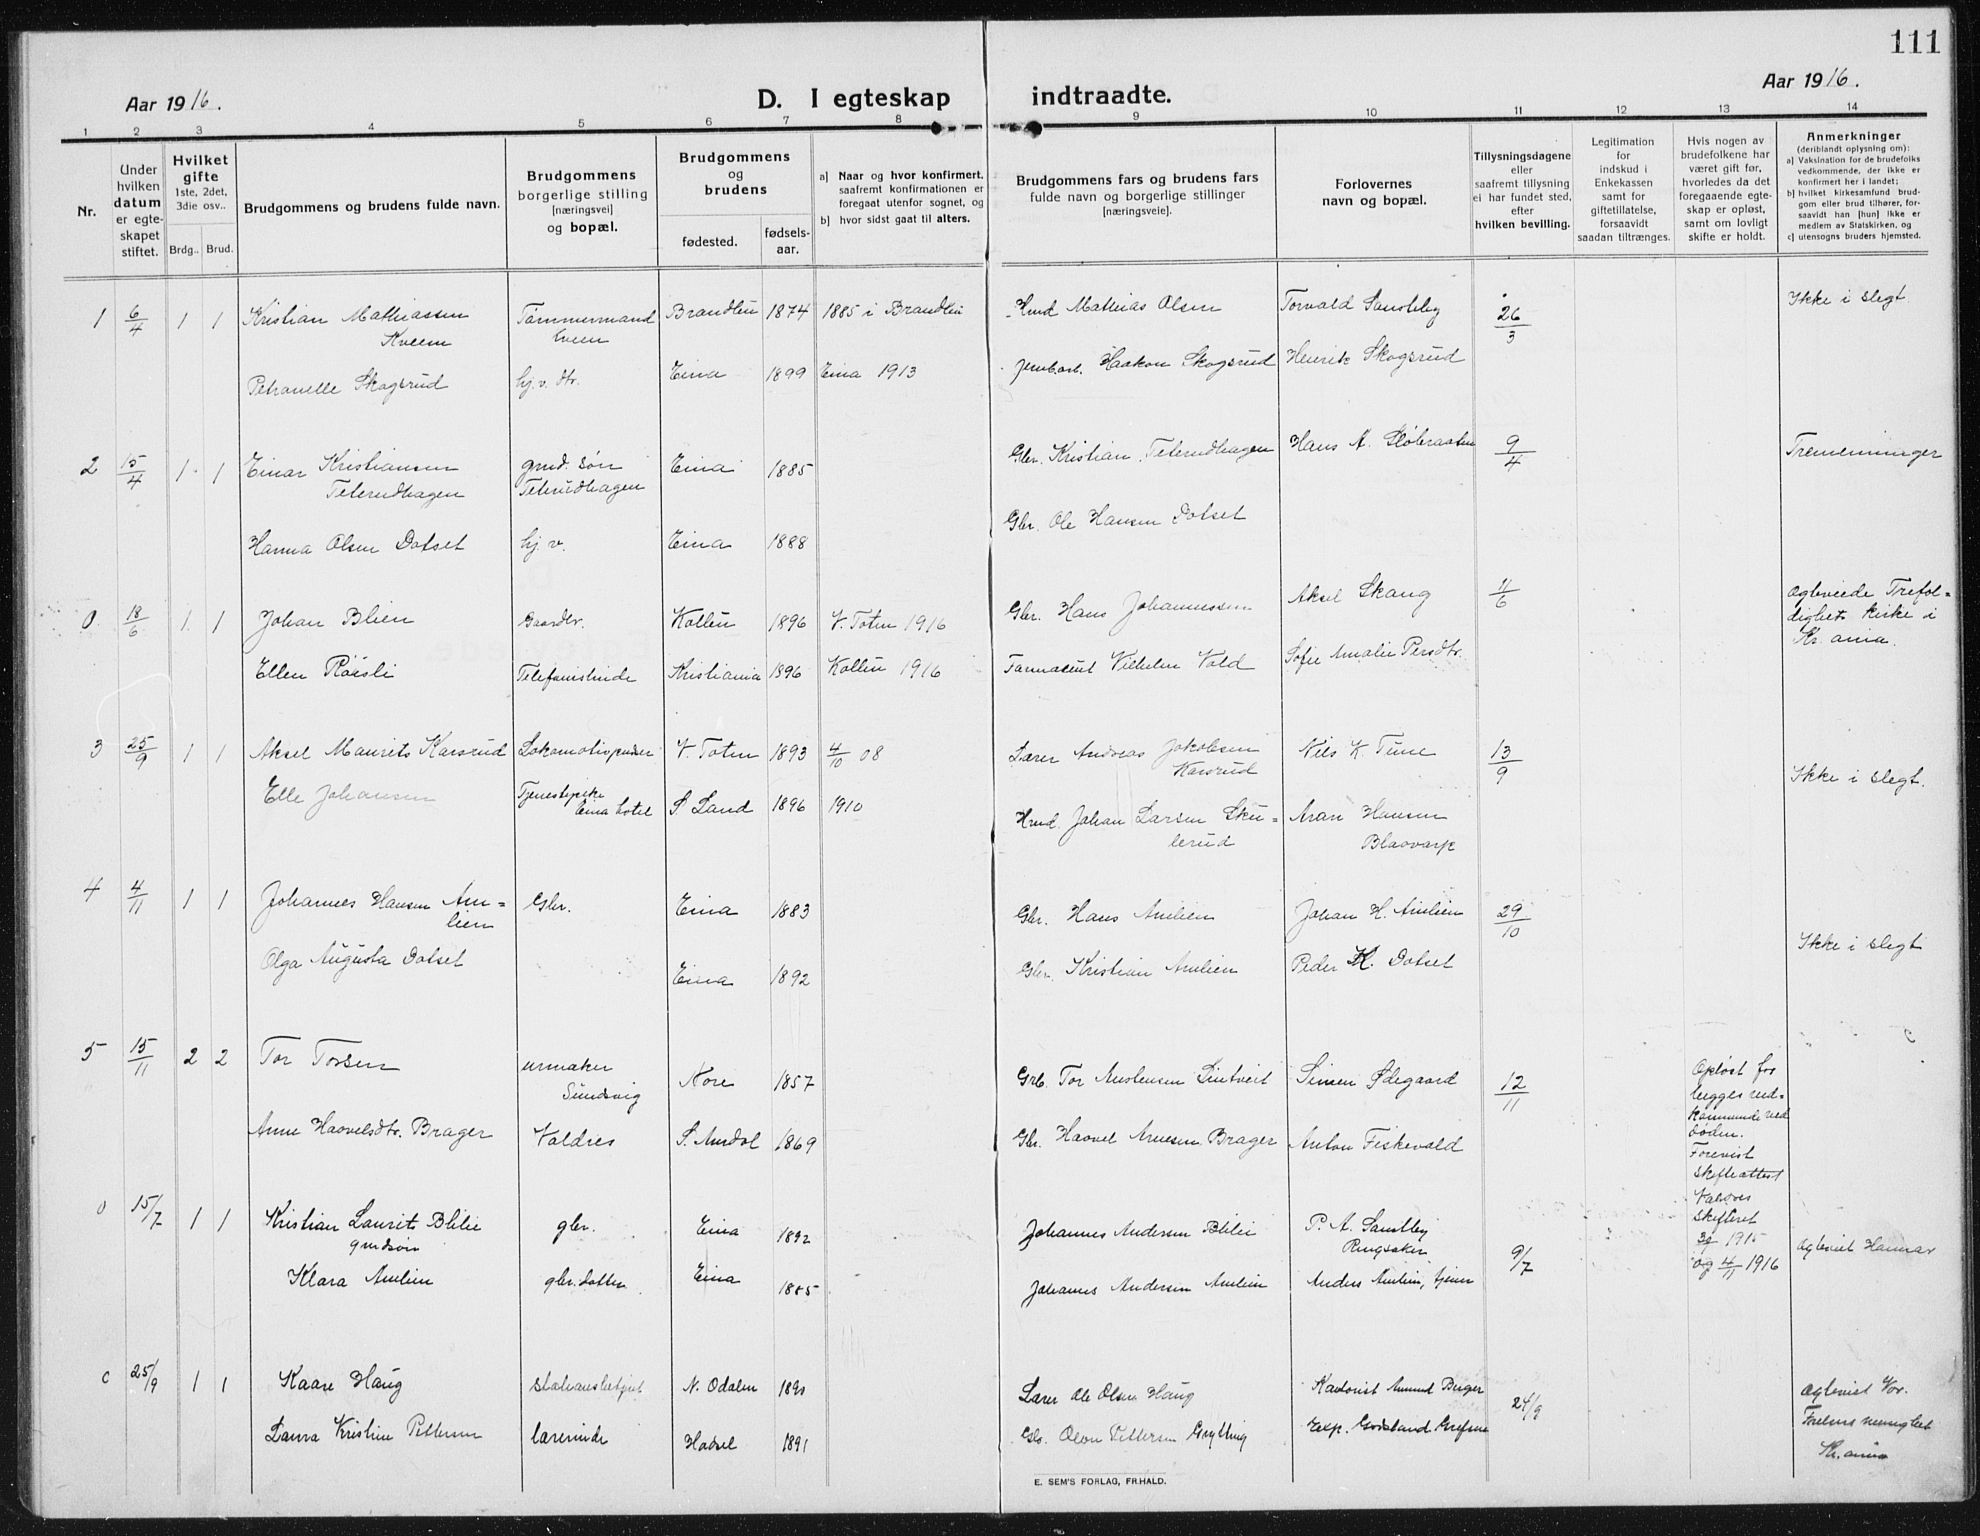 111
Aar 1916.
D. I egteskap indtraadte.
Aar 1916.
1 2 3 4 5 6 7 8 9 10 11 12 13 14
Nr.
Under hvilken datum er egteskapet stiftet.
Hvilket gifte
1ste, 2det, 3die osv..
Brdg.. Brud.
Brudgommens og brudens fulde navn.
Brudgommens borgerlige stilling [næringsvei] og bopæl.
Brudgommens og brudens
fødested.
fødselsaar.
a] Naar og hvor konfirmert, saafremt konfirmationen er foregaat utenfor sognet, og
b] hvor sidst gaat til alters.
Brudgommens fars og brudens fars fulde navn og borgerlige stillinger [næringsveie].
Forlovernes navn og bopæl.
Tillysningsdagene eller saafremt tillysning ei har fundet sted, efter hvilken bevilling.
Legitimation for indskud i Enkekassen samt for giftetillatelse, forsaavidt saadan tiltrænges.
Hvis nogen av brudefolkene har været gift før, hvorledes da det foregaaende egteskap er opløst, samt om lovligt skifte er holdt.
Anmerkninger
(deriblandt oplysning om):
a] Vaksination for de brudefolks vedkommende, der ikke er konfirmert her i landet;
b] hvilket kirkesamfund brudgom eller brud tilhører, forsaavidt han [hun] ikke er medlem av Statskirken, og
c] utensogns bruders hjemsted.
1 6/4 1 1 Kristian Mathiassen Kveem Tømmermand Eveen Brandbu 1874 1885 i Brandbu Hmd Mathias Olsen Torvald Sandsleby 26/3 Ikke i slegt
Petranelle Skogsrud hj. v. dtr. Eina 1899 Eina 1913 Jernb.arb. Haakon Skogsrud Henrik Skogsrud
2 15/4 1 1 Einar Kristiansen Teterudhagen gmd. søn Teterudhagen Eina 1885 Gbr. Kristian Teterudhagen Hans A. Sløbraaten 9/4 Tremenninger
Hanna Olsen Dotset hj. v. Eina 1888 Gbr. Ole Hansen Dotset
0 18/6 1 1 Johan Blien Gaardbr. Kolbu 1896 V. Toten 1916 Gbr. Hans Johannessen Aksel Skang 4/6 Ogleviede Trefoldighets kirke i Kr.ania.
Ellen Röisli Telefonistinde Kristiania 1896 Kolbu 1916 Farmaceut Vilhelm Vold Sofie Amalie Persdtr.
3 25/9 1 1 Aksel Maurits Karsrud Lokomotivpudser V. Toten 1893 4/10 08 Lærer Andreas Jakobsen Karsrud Nils K. Tune 13/9 Ikke i slegt.
Elle Johansen Tjenestepike Eina hotel S. Land 1896 1910 Hmd. Johan Larsen Skulerud Aran Hansen Blaavarp
4 4/11 1 1 Johannes Hansen Amlien Gbr. Eina 1883 Gbr. Hans Amlien Johan H. Amlien 29/10 Ikke i slegt
Olga Augusta Dotset Eina 1892 Gbr. Kristian Amlien Peder K. Dotset
5 15/11 2 2 Tor Torsen urmaker Sundsvig Nore 1857 Grb. Tor Amlensen Sintveit Simen Ødegaard 12/11 Opløst for begges vedkommende ved døden. Forevist skifteattest Valdres skifteret 3/9 1915 og 4/11 1916
Anne Haavelsdtr. Brager Valdres S. Aurdal 1869 Gbr. Haavel Arnesen Brager Anton Fiskevold
0 15/7 1 1 Kristian Laurits Blilie gmdsøn gbr. Eina 1892 Johannes Andersen Blilie P. A. Sandby Ringsaker 9/7 Ogleviet Hamar
Klara Amlien gbr. datter Eina 1885 Johannes Andersen Amlien Anders Amlien,
0 25/9 1 1 Kaare Haug stationsbetjent N. Odalen 1890 Lærer Ole Olsen Haug Kontorist Amund Berger 24/9 Ogleviet Vor Frelsers menighet Kr.ania
Laura Kristine Pettersen lærerinde Hadsel 1891 Gbr. Olav Pettersen Grytting Eksp. Godsland Grefsen
E. SEM'S FORLAG, FR.HALD.